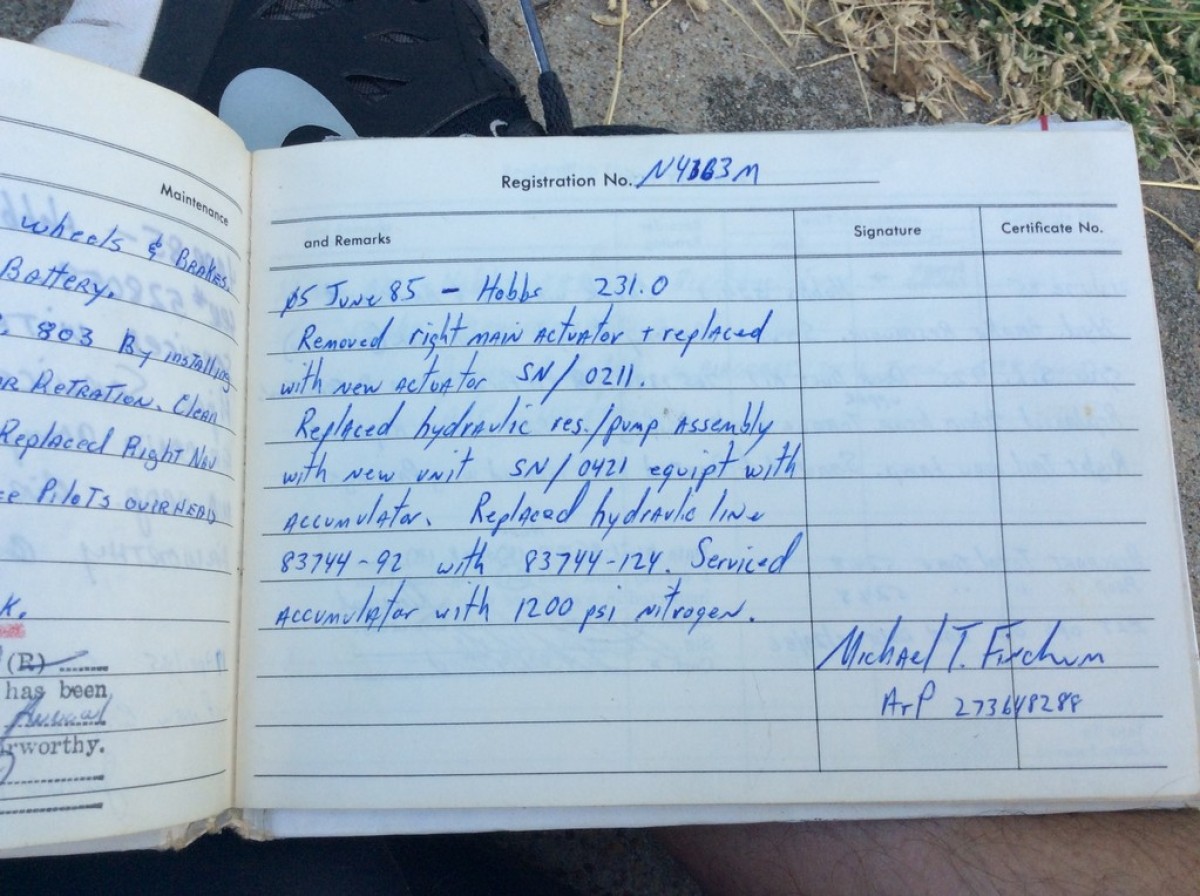 Maintenance
wheels & BRAKES.
Battery.
803 By installing
Clean
Replaced Right Nav
Pilots overhead
K.
(R)
has been
Annual
rworthy.
Registration No.
and Remarks Signature Certificate No.
05 June 85 - Hobbs 231.0
Removed right main actuator + replaced
with new actuator SN/0211.
Replaced hydraulic res./pump assembly
with new unit SN/0421 equipt with
accumulator. Replaced hydraulic line
83744-92 with 83744-124. Serviced
accumulator with 1200 psi nitrogen.
Michael T.
A+P 273648288